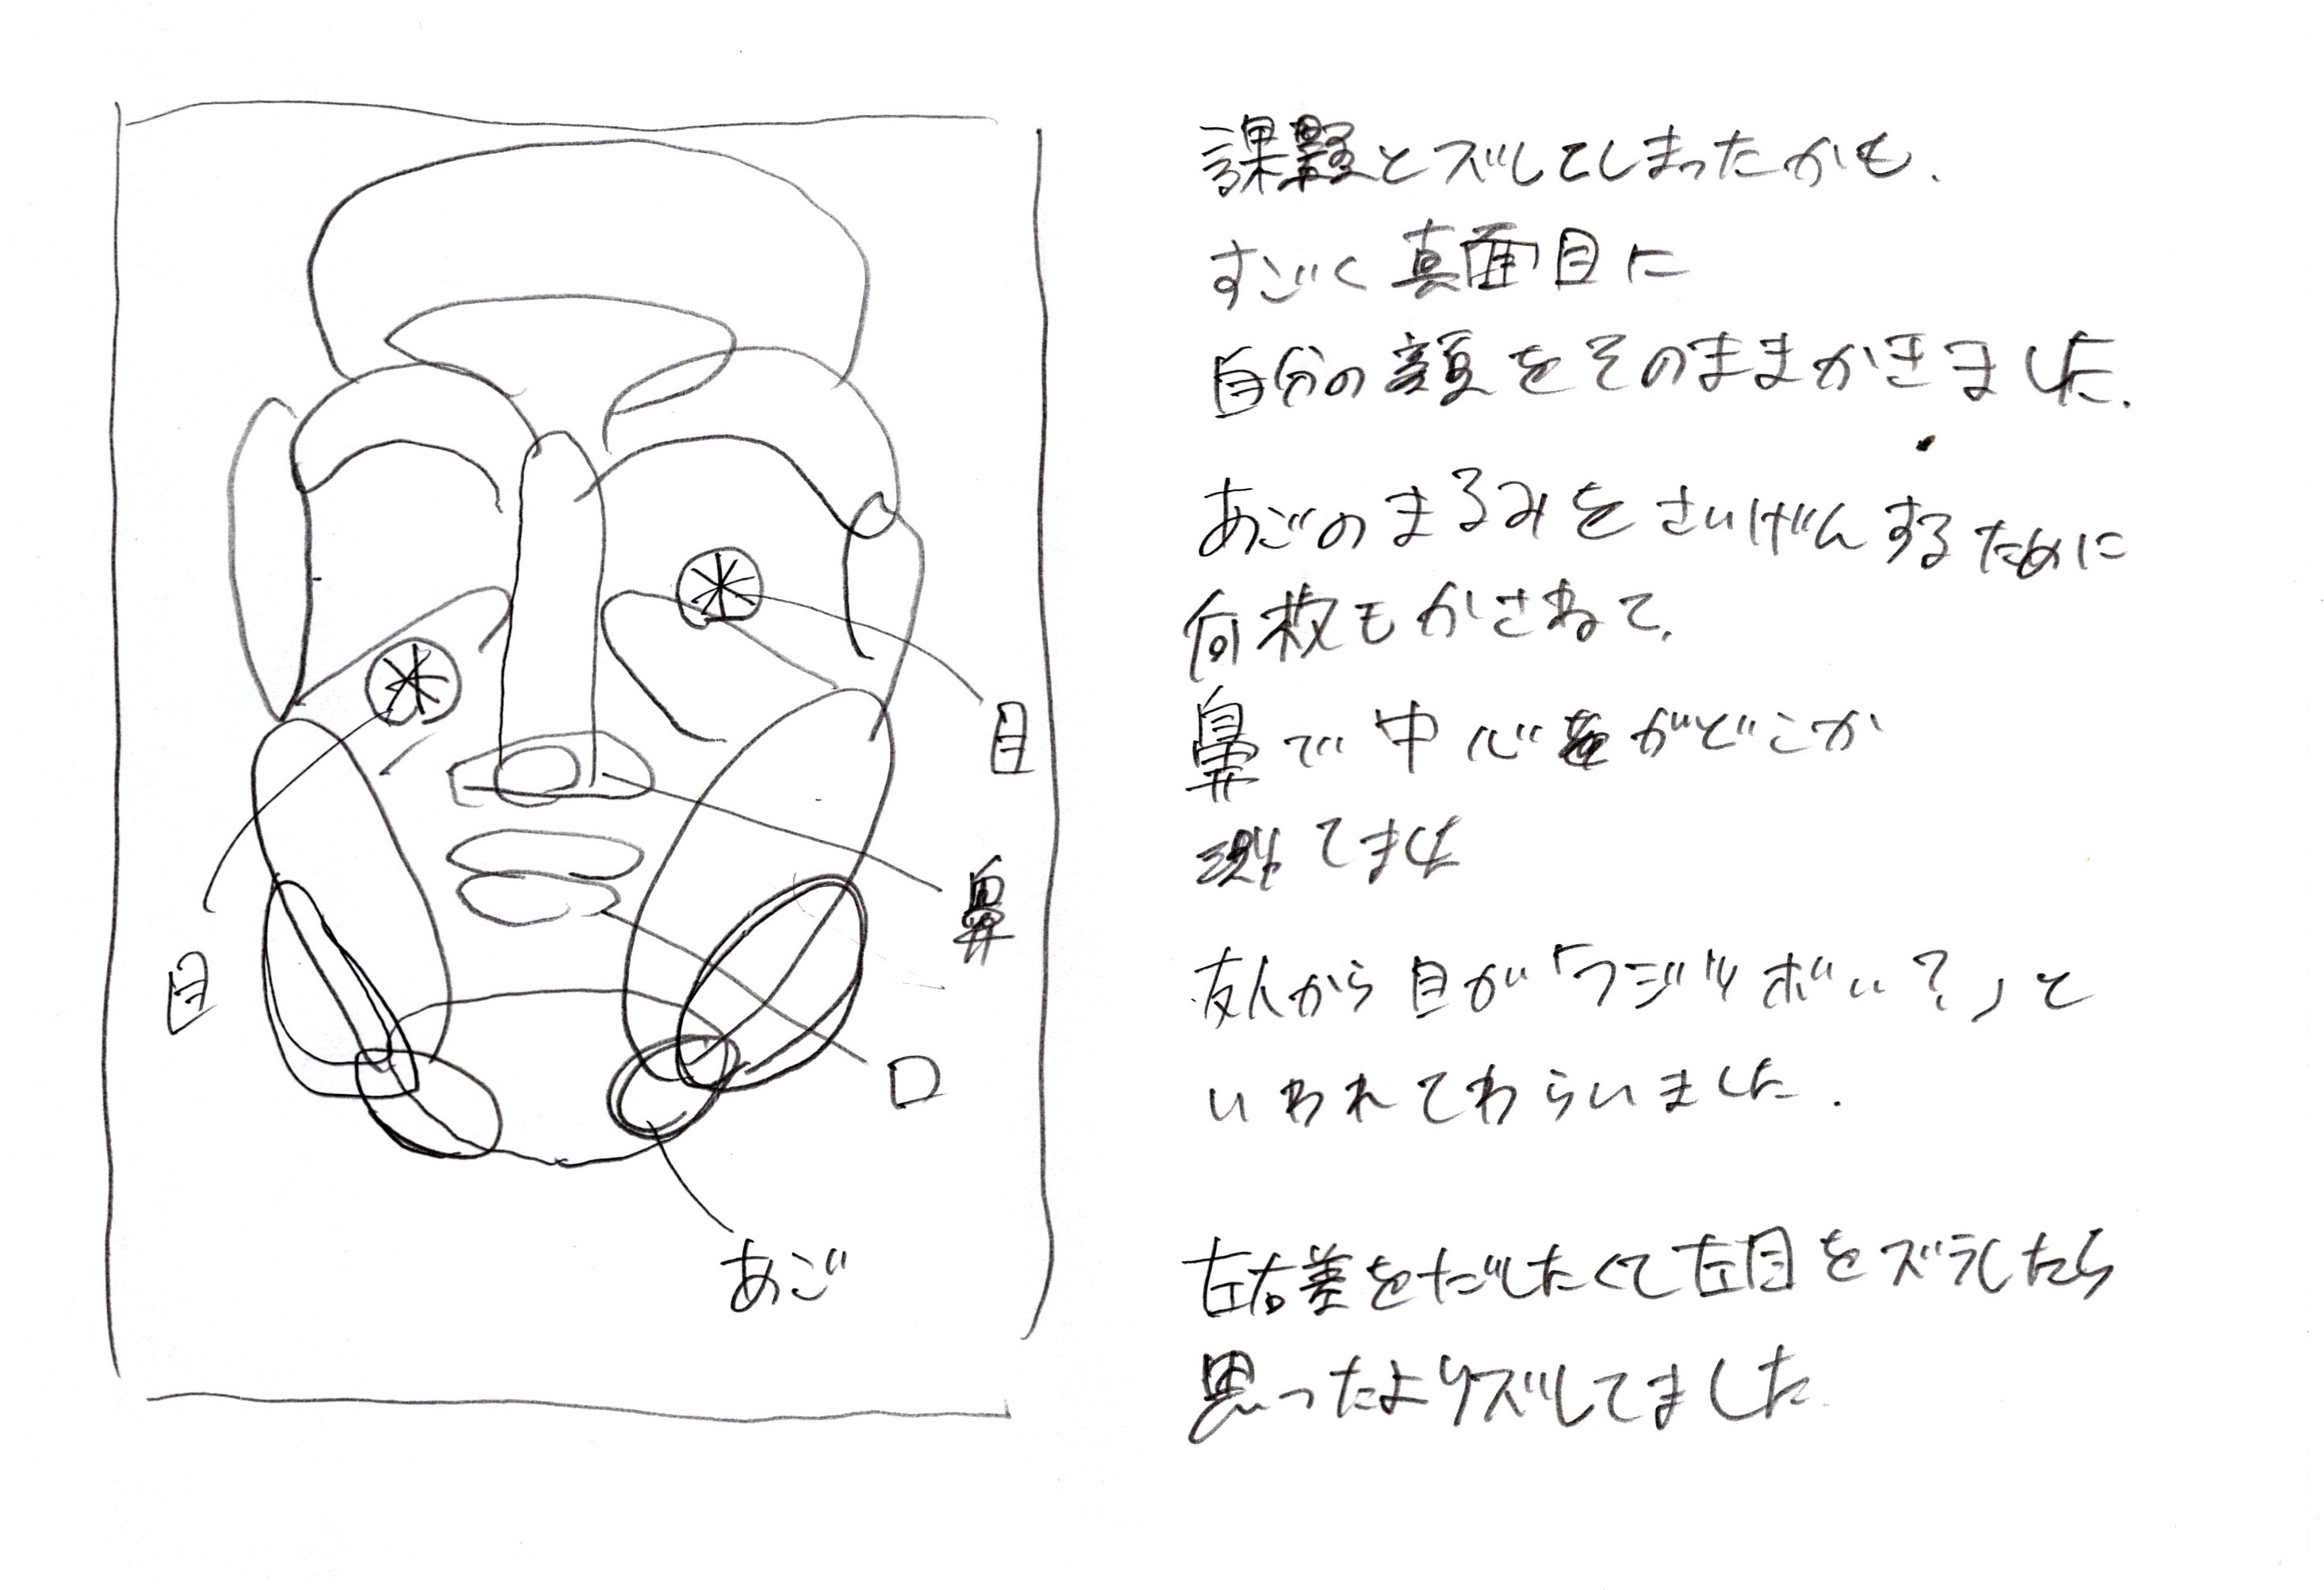 目
鼻
目
口
あご
課題とズレてしまったかも.
すごく真面目に
自分の顔をそのままかきました.
あごのまるみをさいげんするために
何枚もかさねて.
鼻で中心がどこか
測てました
友人から目が「フジツボい?」と
いわれてわらいました.
左右差をだしたくて左目をズラしたら
思ったよりズレてました